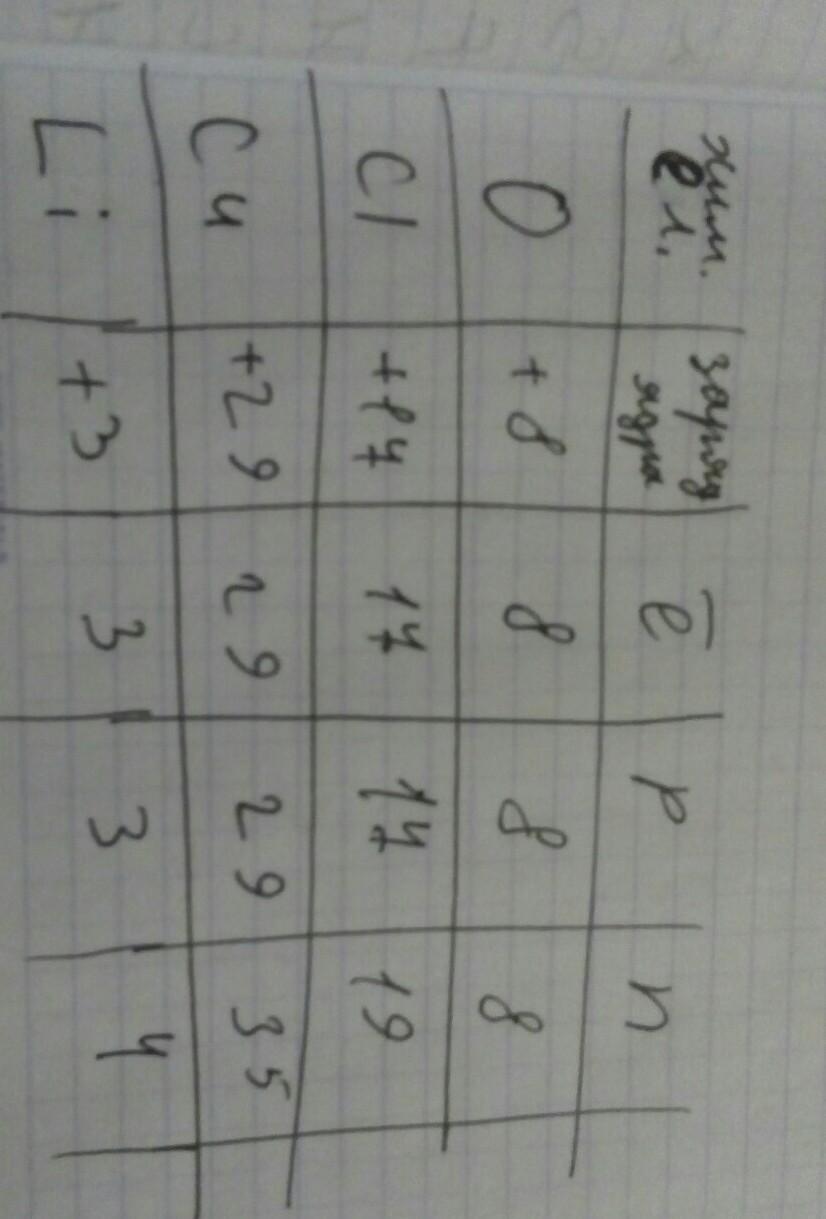 хим. заряд ē p n
ел. ядра
O +8 8 8 8
Cl +17 17 17 19
Cu +29 29 29 35
Li +3 3 3 4